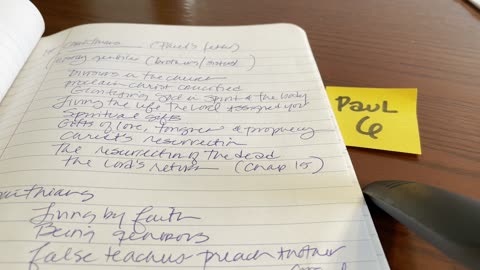 (Paul's letter)
(brothers/sisters)
Divisions in the church
Proclaim Christ crucified
Glorifying God in Spirit & the body
Living the life the Lord assigned you
Spiritual gifts
Gifts of love, tongues & prophecy
Christ's resurrection
The resurrection of the dead
the Lord's return (Chap 15)
living by faith
Being generous
false teachers preach another
PAUL
6